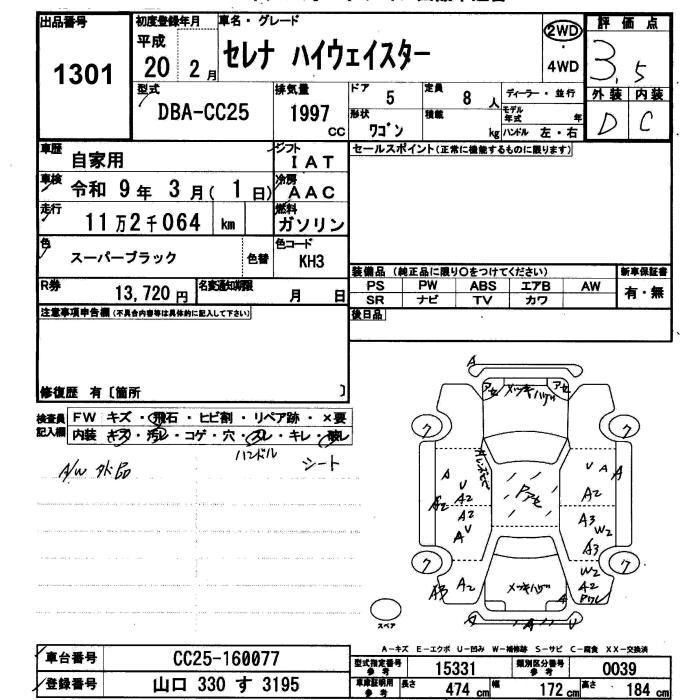 出品番号 初度登録年月 車名・グレード 評価点
1301
平成
20 2月
セレナ ハイウェイスター
2WD
4WD
3.5
型式 DBA-CC25
排気量 1997 CC
ドア 5 定員 8人 ディーラー・並行
形状 ワゴン 積載 kg
モデル年式 年
ハンドル 左・右
外装 内装
D C
車歴 自家用
シフト IAT
セールスポイント(正常に機能するものに限ります)
車検 令和 9年 3月(1日)
冷房 AAC
走行 11万2千064 km
燃料 ガソリン
色 スーパーブラック 色替
色コード KH3
R券 13,720円 名変通知期限 月 日
装備品(純正品に限り○をつけてください) 新車保証書
PS PW ABS エアB AW 有・無
SR ナビ TV カワ
後日品
注意事項申告欄(不具合内容等は具体的に記入して下さい)
修復歴 有〔箇所 〕
検査員記入欄
FW キズ・飛石・ヒビ割・リペア跡・×要
内装 キズ・汚レ・コゲ・穴・スレ・キレ・破レ
ハンドル シート
A/W 外品
A
アセ メッキハゲ アセ
ワ ワ
A
U
A2 A2
A2
U
A
Pアセ
U A A
A2
A3
W2
A3
ワ ワ
A3 A2
メッキハゲ
A
W2
A2
Pワレ
A A U
スペア
A-キズ E-エクボ U-凹み W-補修跡 S-サビ C-腐食 XX-交換済
車台番号 CC25-160077
型式指定番号 参考 15331 類別区分番号 参考 0039
登録番号 山口 330 す 3195
車庫証明用 参考 長さ 474 cm 幅 172 cm 高さ 184 cm